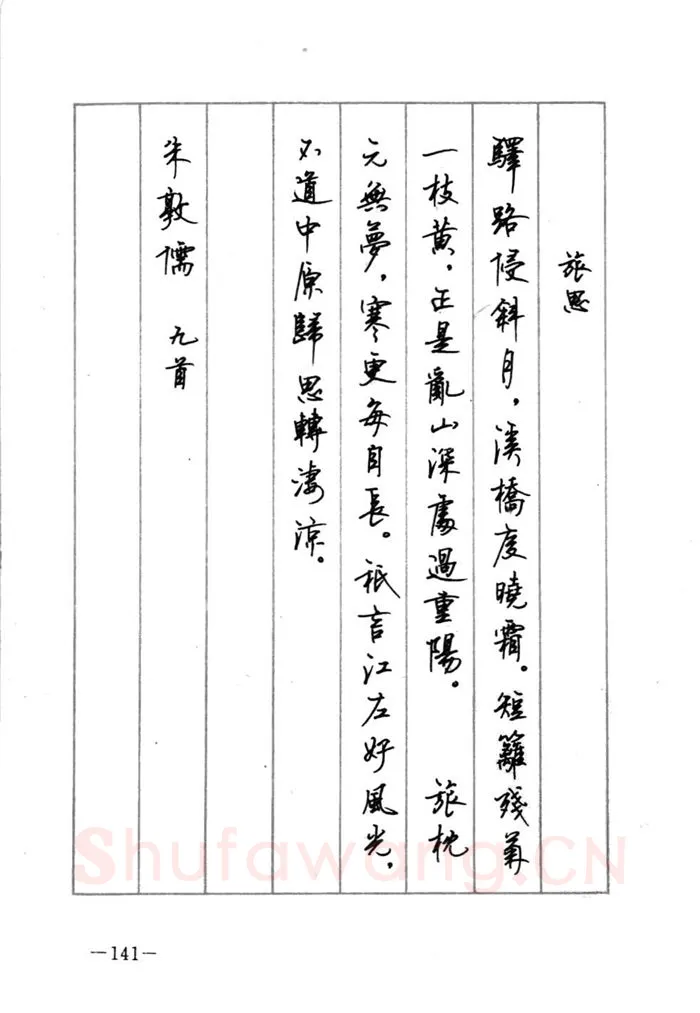 旅思
驛路侵斜月，溪橋度曉霜。短籬殘菊
一枝黃，正是亂山深處過重陽。　旅枕
元無夢，寒更每自長。祇言江左好風光，
不道中原歸思轉淒涼。
朱敦儒　九首
Shufawang.CN
—141—